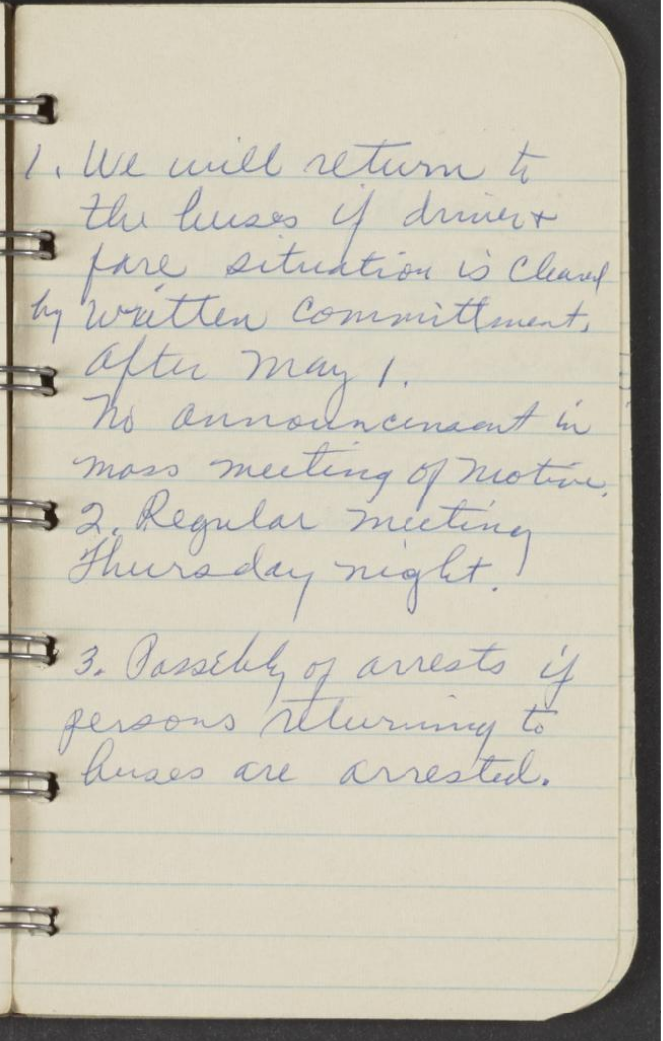 1. We will return to
the buses if driver &
fare situation is cleared
by written committment.
after May 1.
No announcement in
mass meeting of motive.
2. Regular meeting
Thursday night.
3. Possibly of arrests if
persons returning to
buses are arrested.